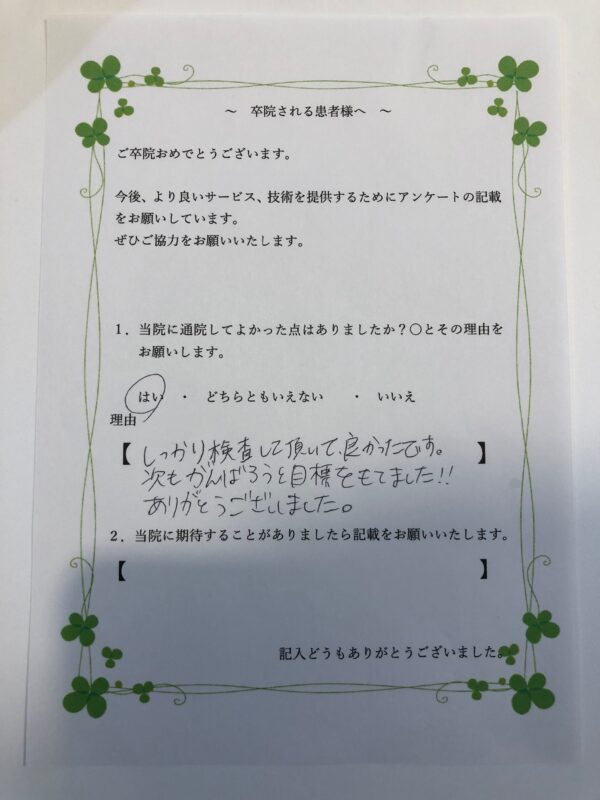 ～　卒院される患者様へ　～
ご卒院おめでとうございます。
今後、より良いサービス、技術を提供するためにアンケートの記載
をお願いしています。
ぜひご協力をお願いいたします。
１．当院に通院してよかった点はありましたか？〇とその理由を
お願いします。
はい　・　どちらともいえない　　・　いいえ
理由
【 しっかり検査して頂いて、良かったです。 】
次もがんばろうと目標をもてました!!
ありがとうございました。
２．当院に期待することがありましたら記載をお願いいたします。
【　】
記入どうもありがとうございました。